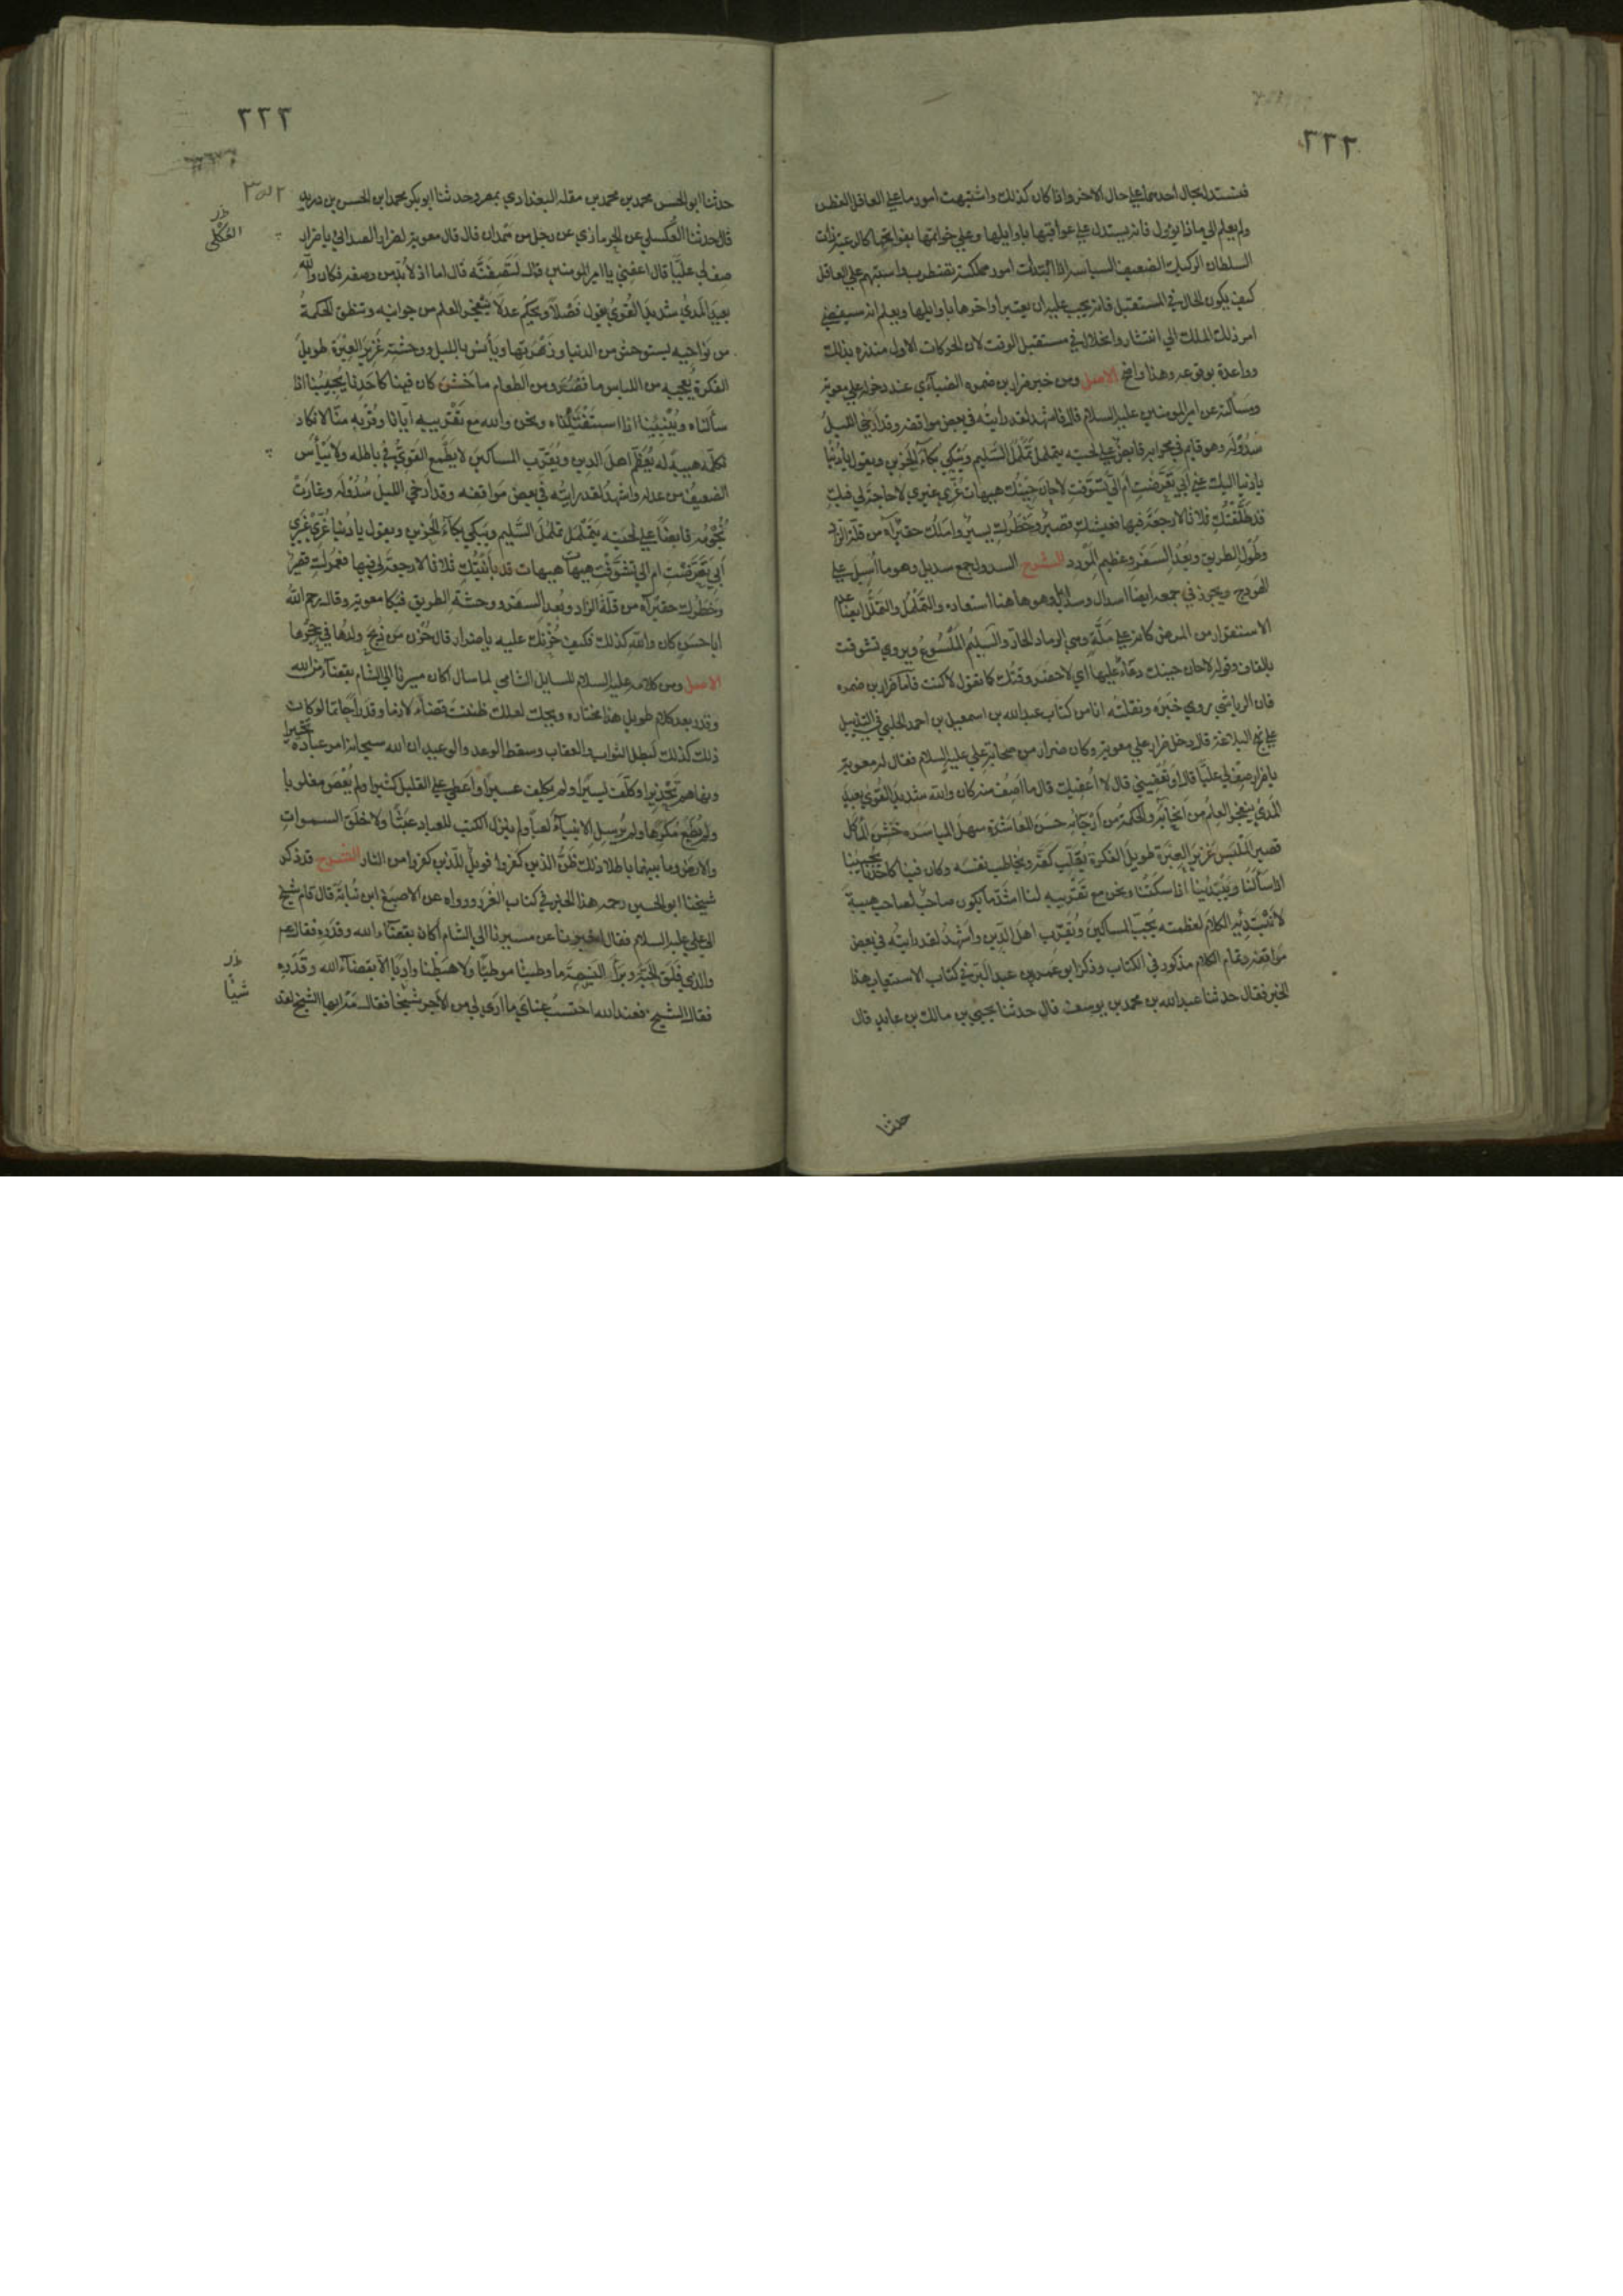 ٢٢٢
فيستدل بحال احدهما علي حال الاخر واذا كان كذلك واشتبهت امور ما علي العاقل الفطن
ولم يعلم الي ماذا يؤول فانه يستدل علي عواقبها باوايلها وعلي خواتمها بفواتحها كالرعية ذات
السلطان الركيك الضعيف السياسة اذا ابتدأت امور مملكته تضطرب واستبهم علي العاقل
كيف يكون الحال في المستقبل فانه يجب عليه ان يعتبر اواخرها باوايلها ويعلم انه سيفضي
امر ذلك الملك الي انتشار وانحلال في مستقبل الوقت لان الحركات الاول منذرة بذلك
وواعدة بوقوعه وهذا واضح الاصل ومن خبر ضرار بن ضمره الضبآئي عند دخوله علي معوية
ومسألته عن امير المومنين عليه السلام قال فاشهد لقد رايته في بعض مواقفه وقد أرخي الليل
سُدُوْلَه وهو قايم في محرابه قابض علي لحيته يتململ تَمَلْمُلَ السَّليم ويَبْكي بُكآءَ الحَزين ويقول يا دُنْيا
يا دنيا اليك عني أبي تَعَرَّضْتِ أم الَيَّ تَشَوَّفتِ لا حان حِيْنُكِ هيهات غُرّي غيري لا حاجة لي فيكِ
قد طَلَّقْتُكِ ثلاثا لا رجعة فيها فعيشك قصيرٌ وخَطَرُكِ يسيرٌ واملك حقيرٌ آه من قلة الزاد
وطُوْلِ الطريق وبُعْدِ السَفَرِ وعظيم المَوْرِد الشرح السدول جمع سديل وهو ما اُسبل علي
الهودج ويجوز في جمعه ايضا اسدال وسدايل وهو هاهنا استعاره والتَّمَلْمُلُ والتَمَلُّلُ ايضا عدم
الاستقرار من المرض كانه علي مَلَّةٍ وهي الرماد الحارّ والسَليم المَلْسُوعُ ويروي تشوقت
بالقاف وقوله لا حان حينك دعآء عليها اي لا حضر وقتُك كما تقول لا كنت فأما ضرار بن ضمره
فان الرياشي روي خَبَرَه ونقلته انا من كتاب عبد الله بن اسمعيل بن احمد الحلبي في التذييل
علي نهج البلاغة قال دخل ضرار علي معوية وكان ضرار من صحابة علي عليه السلام فقال له معوية
يا ضرار صِفْ لي عليًّا قال اَوَتُعْفيني قال لا اُعفيك قال ما اَصِفُ منه كان والله شديدَ القُوَي بعيدَ
المَدَي يتفجر العلمُ من اَنحائِه والحكمةُ من اَرْجَائِه حسَنَ المُعاشَرَة سهلَ المباشره خَشِنَ المأكل
قصيرَ المَلْبَس غَزيرَ العَبْرَة طويلَ الفكرة يُقَلِّب كفَّه ويُخاطب نفسَه وكان فينا كاَحَدِنا يُجيبُنا
اذا سألَنَا ويَبْتَدِئُنا اذا سكَتْنا ونحن مع تَقْريبه لنا اشَدَّ ما يكون صاحبٌ لصاحبٍ هيبةً
لا نَبْتَدِئُه الكلامَ لعظمته يُحِبُّ المساكينَ ويُقَرِّب اهلَ الدِّين واَشهَدُ لقد رايتُه في بعض
مَواقفه وتمام الكلام مذكور في الكتاب وذكر ابو عمر بن عبد البَرّ في كتاب الاستيعاب هذا
الخبر فقال حدثنا عبد الله بن محمد بن يوسف قال حدثنا يحيي بن مالك بن عايد قال
حدثنا
٢٢٣
حدثنا ابو الحسن محمد بن محمد بن مقله البغدادي بمصر وحدثنا ابو بكر محمد ابن الحسن بن دريد
قال حدثنا العُكسلي عن الحرمازي عن رجل من همدان قال قال معوية لضرار الصدائي يا ضرار
صِف لي عليًّا قال اعفِني يا امير المومنين قال لَتَصِفَنَّه قال اما اذ لا بُدّ من وصفه فكان والله
بعيدَ المَديُ شديدَ القُوَيُ يقول فَصْلاً ويحكم عدلاً يتفجر العلم من جوانبه وتنطق الحكمةُ
من نَوَاحِيه يستوحش من الدنيا وزَهْرَتِها ويأنسُ بالليل ووحشته غَزيرَ العِبْرَة طويلَ
الفكرة يُعجبه من اللباس ما قَصُرَ ومن الطعام ما خَشُنَ كان فينا كاَحَدِنا يُجيبُنا اذا
سألناه ويُنبِّينا اذا استَفْتَيْناه ونحن والله مع تَقْريبه ايّانا وقُرْبِه منّا لا نكاد
نكلّمه هيبةً له يُعَظِّمُ اهلَ الدين ويُقَرِّب المساكين لا يَطْمَع القَويُّ في باطله ولا يَيْأَس
الضعيفُ من عدله واشهدُ لقد رايتُه في بعض مَوَاقِفه وقد أرخي الليلُ سُدُوْلَه وغارَتْ
نُجُوْمُه قابضاً علي لحيَته يَتَمَلْمَلُ تَمَلْمُلَ السَّليم ويَبكي بكآءَ الحَزين ويقول يا دُنيا غُرِّيْ غَيري
أبي تَعَرَّضْتِ ام الي تَشَوَّفْتِ هيهات هيهات قد بايَنْتُكِ ثلاثا لا رجعة لي فيها فعُمْرُكِ قصيرٌ
وخَطَرُك حقيرٌ آه من قلّةَ الزاد وبُعدِ السفَر ووحشَةِ الطريق فبكا معوية وقال رحم الله
ابا حسَن كان والله كذلك فكيف حُزْنُك عليه يا ضرار قال حُزْن مَن ذُبِحَ ولدُها في حِجْرها
الاصل ومن كلامه عليه السلام للسايل الشامي لما سال اكان مسيرنا الي الشام بقضآء من الله
وقدر بعد كلام طويل هذا مختاره ويحك لعلك ظننت قضآءً لازما وقدَراً حَاتما لو كان
ذلك كذلك لبطل الثواب والعقاب وسقط الوعد والوعيد ان الله سبحانه امر عباده تخييرا
ونهاهم تَحْذيرا وكَلّف يَسيرًا ولم يكلف عسيرًا واَعطي علي القليل كثيرا ولم يُعْصَ مغلوبا
ولم يُطَعْ مُكْرِهًا ولم يُرْسِل الانبيآءَ لَعباً ولم ينزل الكتب للعباد عَبَثًا ولا خلَقَ السموات
والارض وما بينهما باطلا ذلك ظَنُّ الذين كفروا فويلٌ للذين كفروا من النار الشرح قد ذكر
شيخنا ابو الحسين رحمه هذا الخبر في كتاب الغُرَر ورواه عن الاصبغ ابن نُبَاتَة قال قام شيخ
الي علي عليه السلام فقال اخبرنا عن مسيرنا الي الشام أكان بقضآء الله وقدَره فقال عم
والذي فَلَقَ الحَبَّة وبَرَأَ النَسَمَة ما وطينا موطئًا ولا هَبَطْنا وادِيًا الا بقضآء الله وقَدَرِه
فقال الشيخ فعند الله اَحتسبُ عنايَ ما ارَي لي من الاَجر شيخا فقال مَه ايها الشيخ لقد
العُكْلي
شيًا